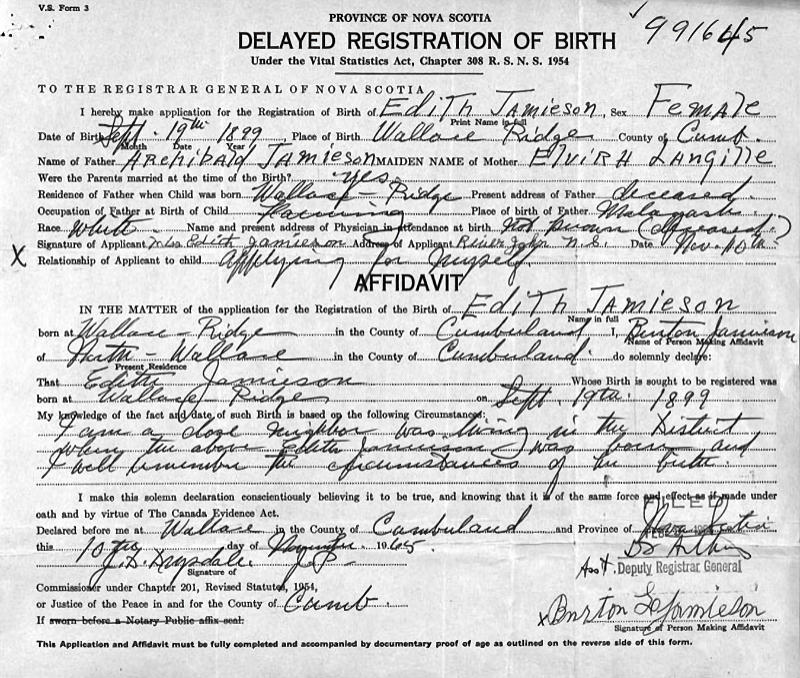 V.S. Form 3
991645
PROVINCE OF NOVA SCOTIA
DELAYED REGISTRATION OF BIRTH
Under the Vital Statistics Act, Chapter 308 R. S. N. S. 1954
TO THE REGISTRAR GENERAL OF NOVA SCOTIA
I hereby make application for the Registration of Birth of Edith Jamieson, Sex Female
Print Name in full
Date of Birth Sept. 19th 1899 Place of Birth Wallace Ridge County of Cumb.
Month Date Year
Name of Father Archibald Jamieson MAIDEN NAME of Mother Elvira Langille
Were the Parents married at the time of the Birth? yes
Residence of Father when Child was born Wallace-Ridge Present address of Father deceased.
Occupation of Father at Birth of Child Farming Place of birth of Father Malagash
Race White Name and present address of Physician in attendance at birth Not known (deceased?)
Signature of Applicant Miss Edith Jamieson Address of Applicant River John N.S. Date Nov. 10th
X Relationship of Applicant to child applying for myself.
AFFIDAVIT
IN THE MATTER of the application for the Registration of the Birth of Edith Jamieson
Name in full
born at Wallace-Ridge in the County of Cumberland I, Burton Jamieson
Name of Person Making Affidavit
of North-Wallace in the County of Cumberland. do solemnly declare:
Present Residence
That Edith Jamieson Whose Birth is sought to be registered was
born at Wallace-Ridge on Sept. 19th. 1899
My knowledge of the fact and date of such Birth is based on the following Circumstances:
I am a close neighbor was living in the District
when the above Edith Jamieson was born and
I well remember the circumstances of the birth.
I make this solemn declaration conscientiously believing it to be true, and knowing that it is of the same force and effect as if made under
oath and by virtue of The Canada Evidence Act.
FILED
Declared before me at Wallace in the County of Cumberland and Province of Nova Scotia
this 10th day of November 1965.
J.P.
Signature of
Ass't. Deputy Registrar General
Commissioner under Chapter 201, Revised Statutes, 1954,
or Justice of the Peace in and for the County of Cumb.
x Burton L Jamieson
Signature of Person Making Affidavit
If sworn before a Notary Public affix seal.
This Application and Affidavit must be fully completed and accompanied by documentary proof of age as outlined on the reverse side of this form.